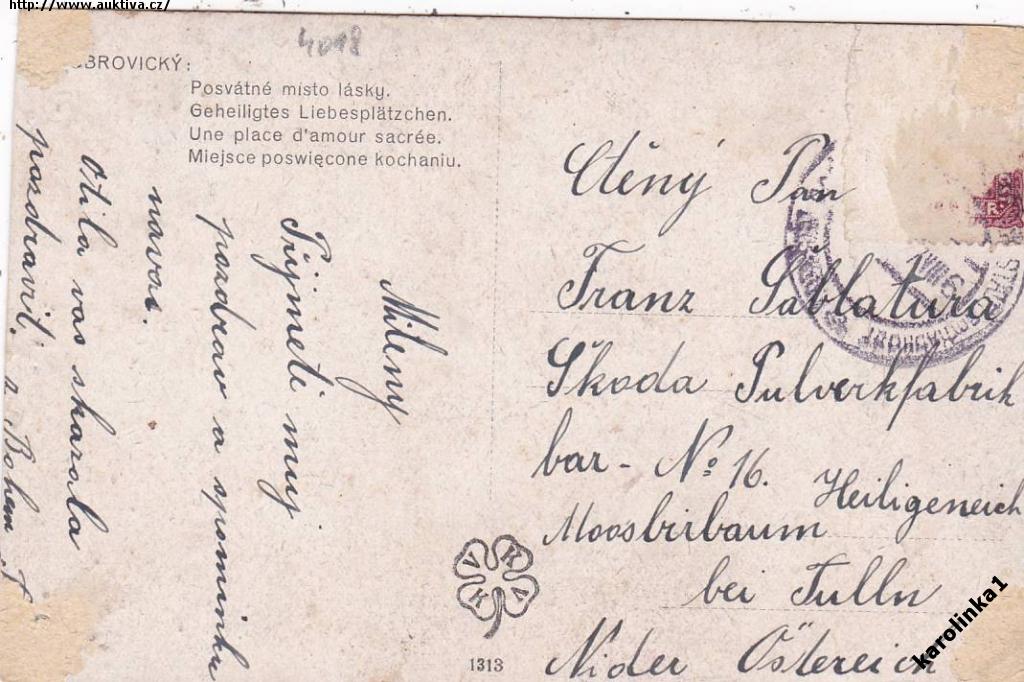 http://www.auktiva.cz/
4018
BROVICKÝ:
Posvátné místo lásky.
Geheiligtes Liebesplätzchen.
Une place d'amour sacrée.
Miejsce poswięcone kochaniu.
Mileny
Prijmeti muj
pozdrav a spominku
navas.
Otila vas skazala
pozdravit.
z Bohem
Ctěný Pan
Franz Šablatura
Škoda Pulverkfabrik
bar - No 16.
Heiligeneich
Moosbirbaum
bei Tulln
Nider Östereich
VKKA
1313
karolinka1